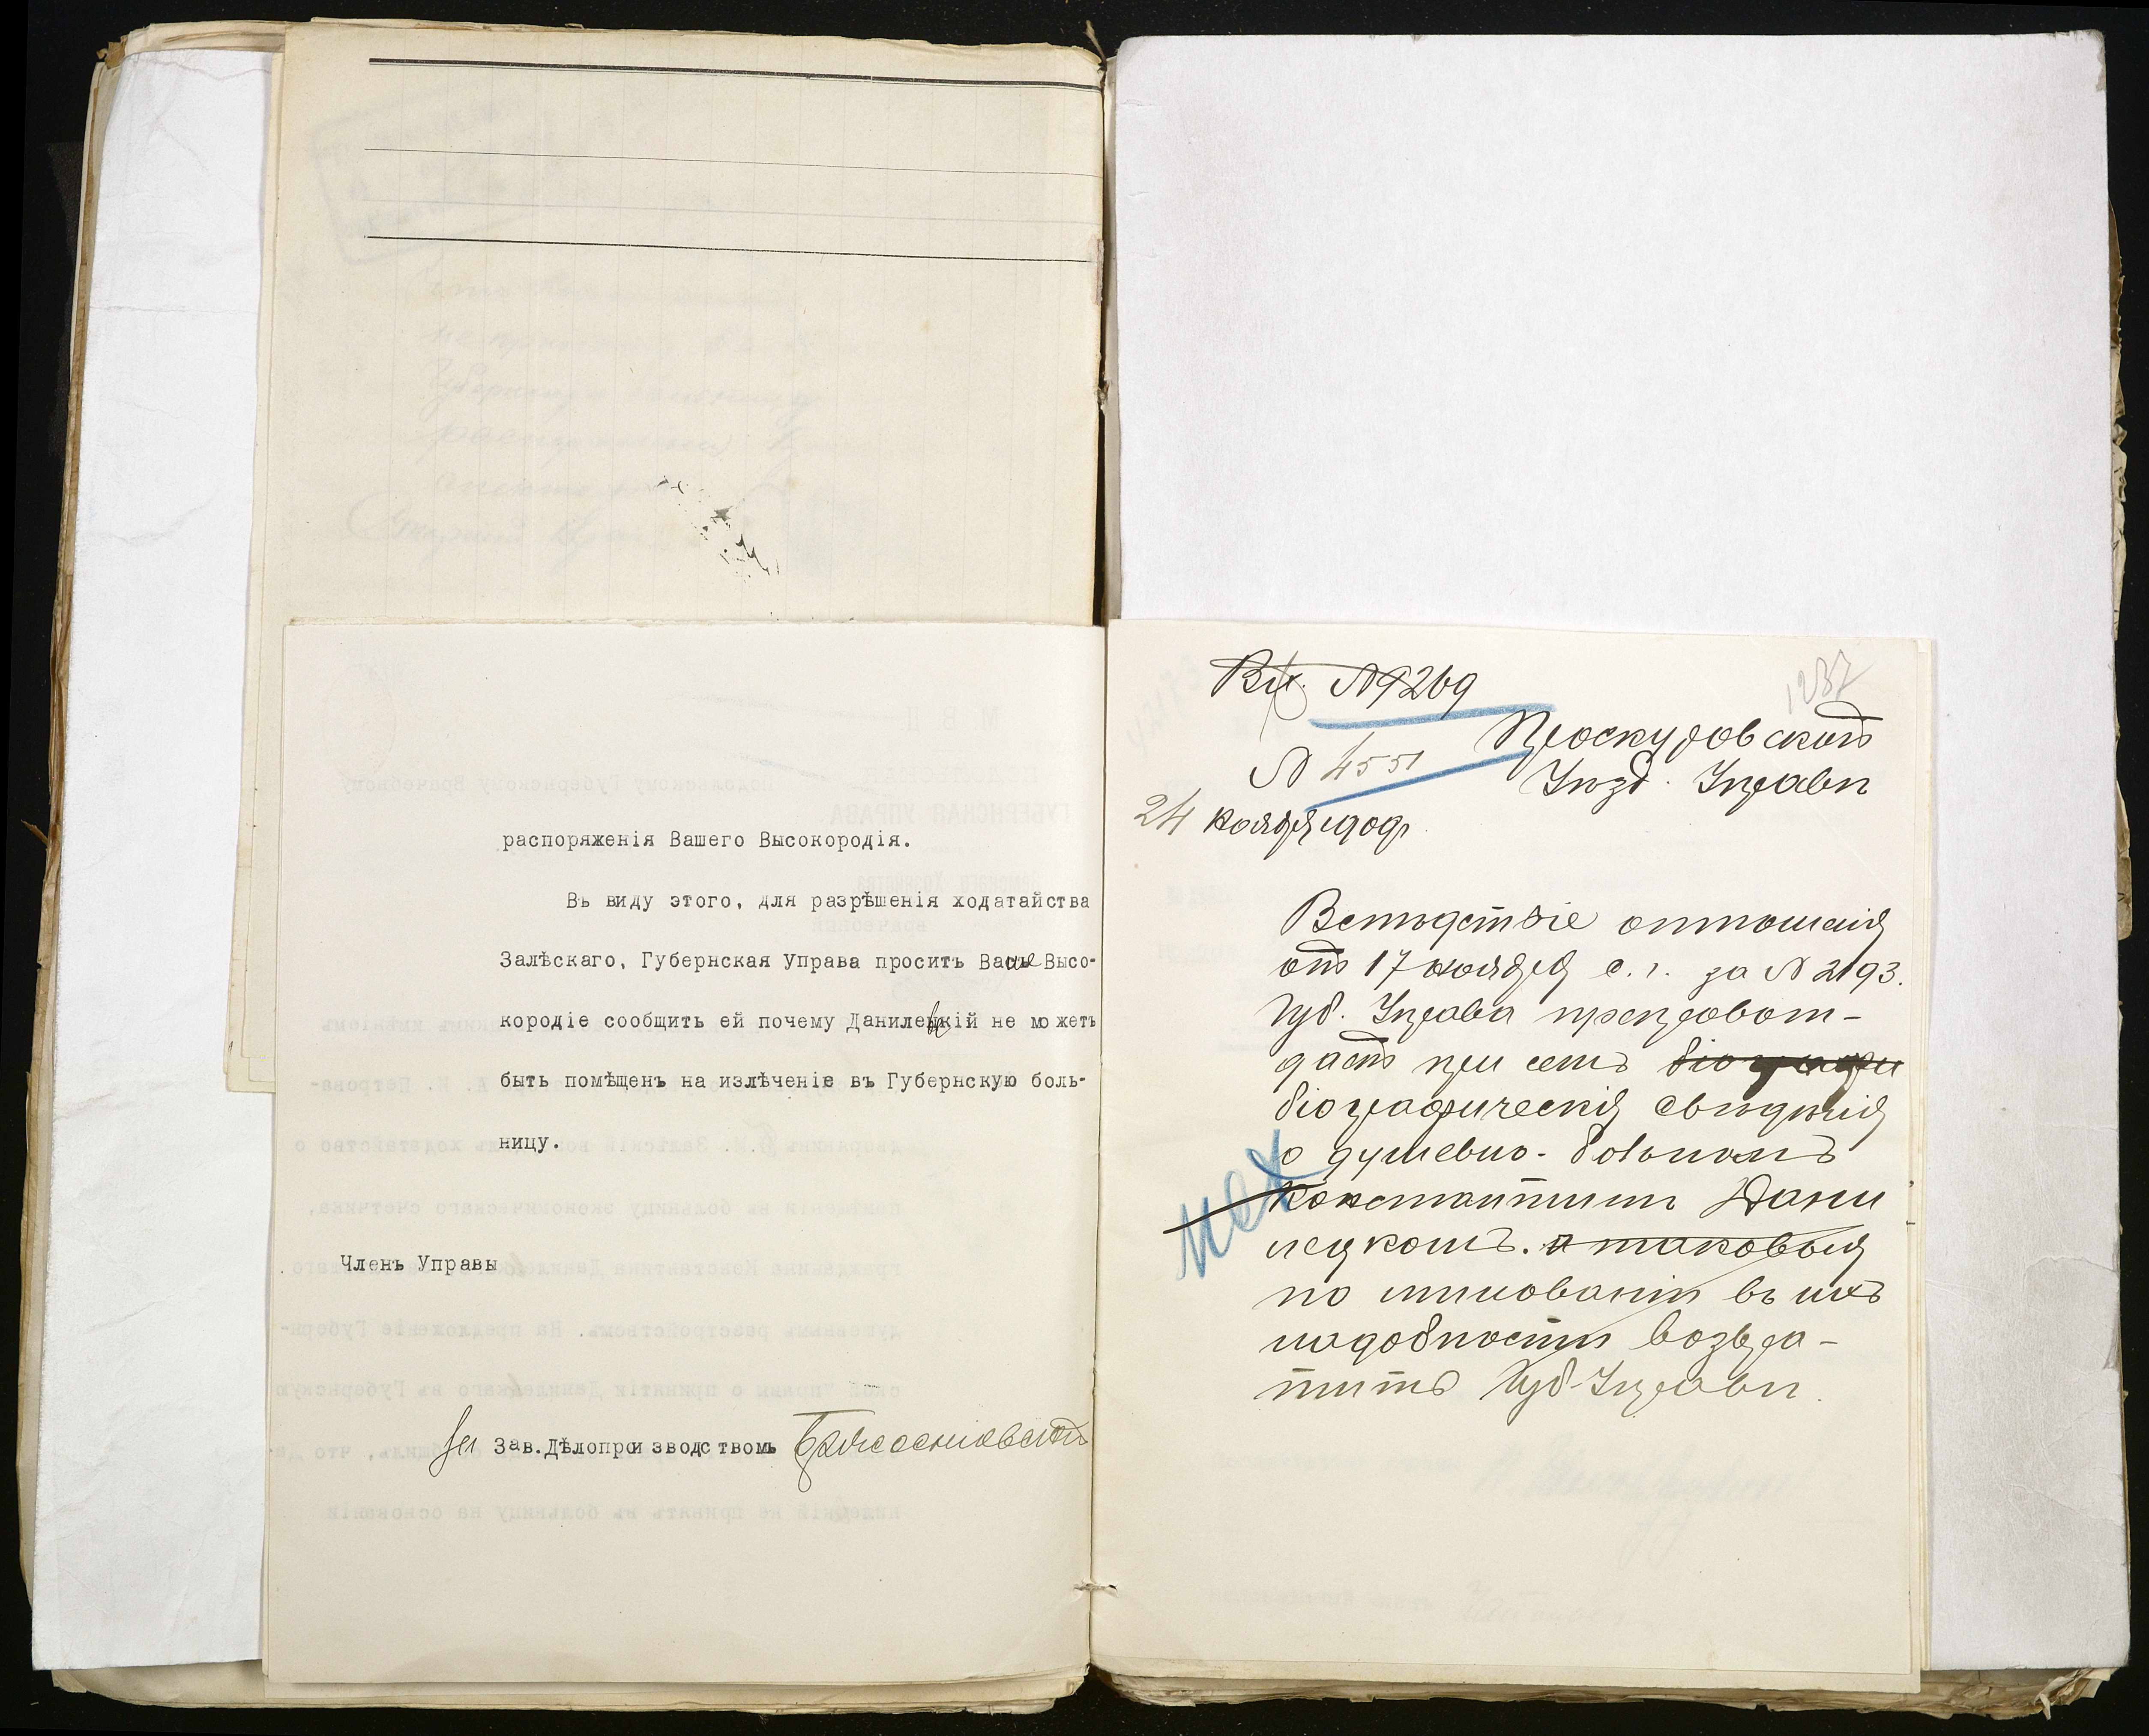 распоряженія Вашего Высокородія.
Въ виду этого, для разрѣшенія ходатайства
Залѣскаго, Губернская Управа проситъ Ваше Высо-
кородіе сообщить ей почему Данилевскій не можетъ
быть помѣщенъ на излѣченіе въ Губернскую боль-
ницу.
Членъ Управы
За Зав.Дѣлопроизводствомъ
Вх. № 9269
1237
Проскуровской
Уѣзд. Управѣ
№ 4551
24 ноября 1909 г.
Вслѣдствіе отношенія
отъ 17 ноября с. г. за № 2193.
Губ. Управа препровож-
даетъ при семъ біографи
біографическія свѣдѣнія
о душевно-больномъ
Константинѣ Дани
лецкомъ. и таковыя
по минованіи въ нихъ
надобности возвра-
тить Губ. Управѣ.